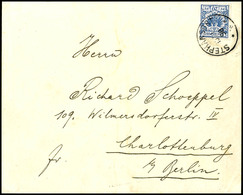 STEPH
Herrn
Richard Schoeppel
109. Wilmersdorferstr. IV
Charlottenburg
fr.
b/ Berlin.